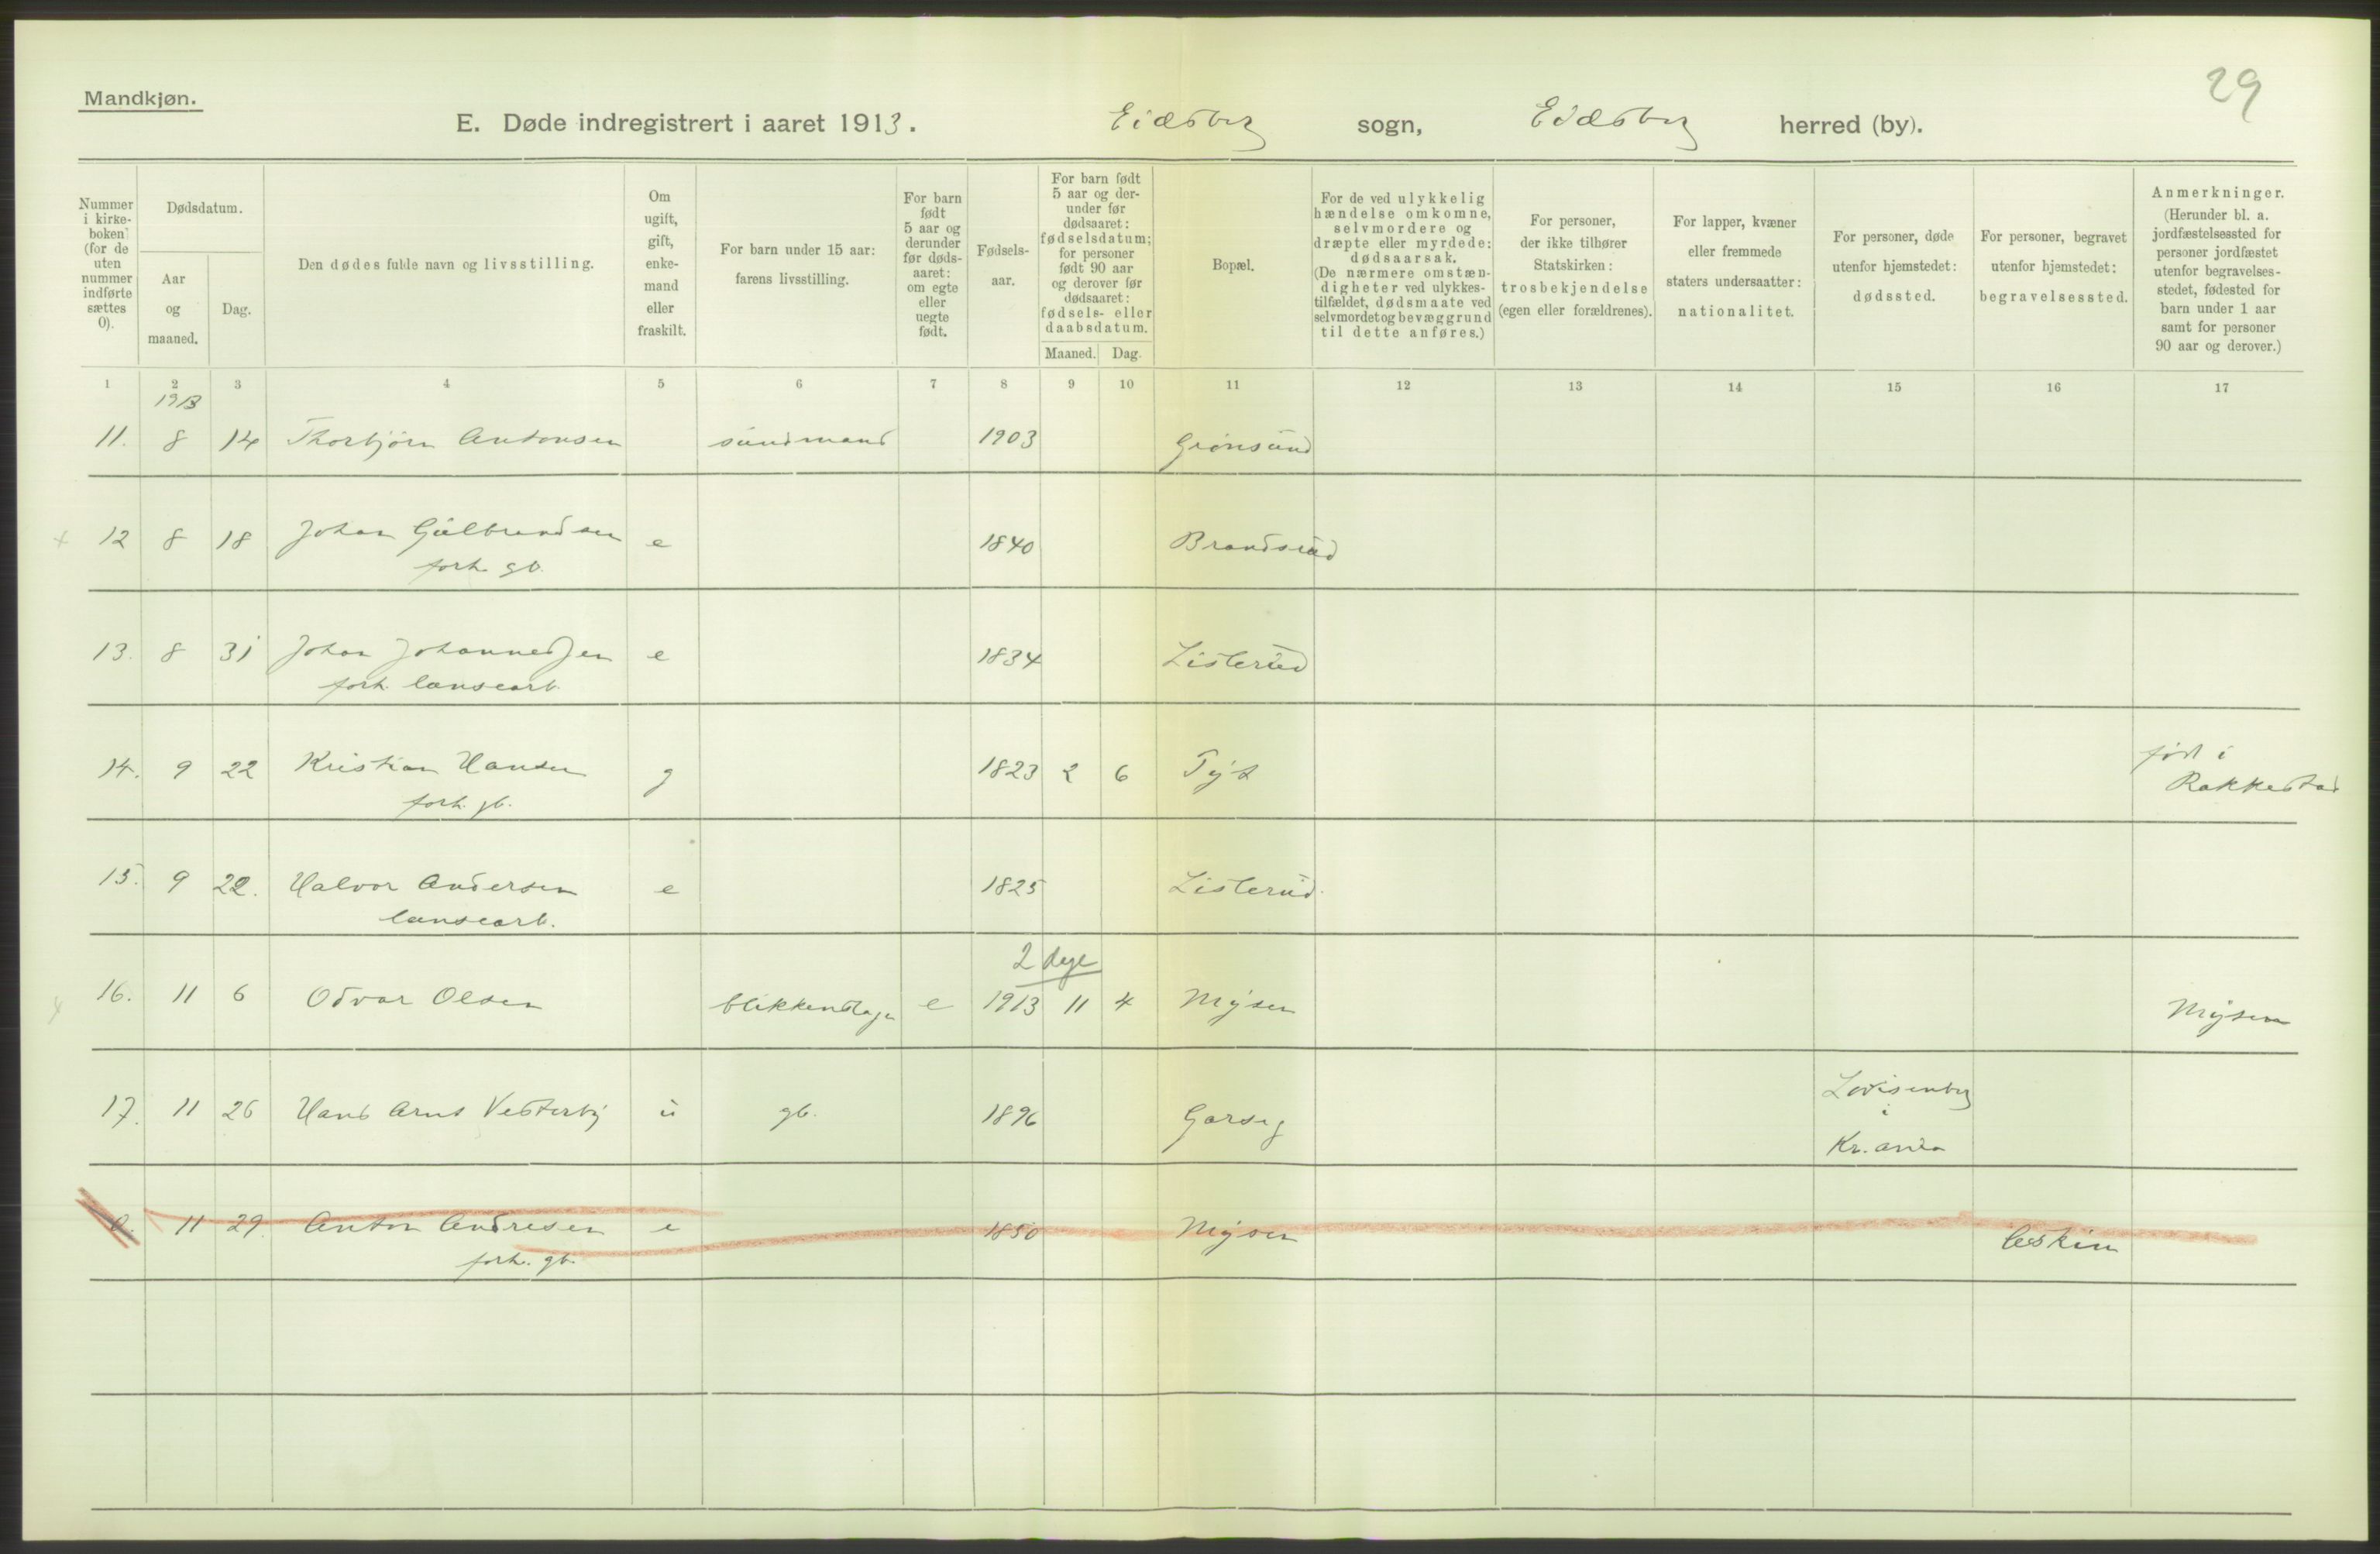 29
Mandkjøn.
E. Døde indregistrert i aaret 1913. Eidsberg sogn, Eidsberg herred (by).
Nummer i kirkeboken (for de uten nummer indførte sættes 0).
Dødsdatum.
Aar og maaned.
Dag.
Den dødes fulde navn og livsstilling.
Om ugift, gift, enkemand eller fraskilt.
For barn under 15 aar: farens livsstilling.
For barn født 5 aar og derunder før dødsaaret: om egte eller uegte født.
Fødselsaar.
For barn født 5 aar og derunder før dødsaaret: fødselsdatum; for personer født 90 aar og derover før dødsaaret: fødsels- eller daabsdatum.
Maaned. Dag.
Bopæl.
For de ved ulykkelig hændelse omkomne, selvmordere og dræpte eller myrdede: dødsaarsak. (De nærmere omstændigheter ved ulykkestilfældet, dødsmaate ved selvmordet og bevæggrund til dette anføres.)
For personer, der ikke tilhører Statskirken: trosbekjendelse (egen eller forældrenes).
For lapper, kvæner eller fremmede staters undersaatter: nationalitet.
For personer, døde utenfor hjemstedet: dødssted.
For personer, begravet utenfor hjemstedet: begravelsessted.
Anmerkninger. (Herunder bl. a. jordfæstelsessted for personer jordfæstet utenfor begravelsesstedet, fødested for barn under 1 aar samt for personer 90 aar og derover.)
1 2 3 4 5 6 7 8 9 10 11 12 13 14 15 16 17
1913
11. 8 14 Thorbjørn Antonsen sundmand 1903 Grønsund
12 8 18 Johan Gulbrandsen e 1840 Brandsrud
forh. gb.
13. 8 31 Johan Johannessen e 1834 Listerud
forh. lænsearb.
14. 9 22 Kristian Hansen g 1823 2 6 Tyt født i
forh. gb. Rakkestad
15. 9 22. Halvor Andersen e 1825 Listerud.
lænsearb.
2 dage
16. 11 6 Odvar Olsen blikkenslager e 1913 11 4 Mysen Mysen
17. 11 26 Hans Arnt Vesterby u gb. 1896 Garseg Lovisenberg
i
Kr.ania
0. 11 29. Anton Andresen e 1850 Mysen Askim
forh. gb.